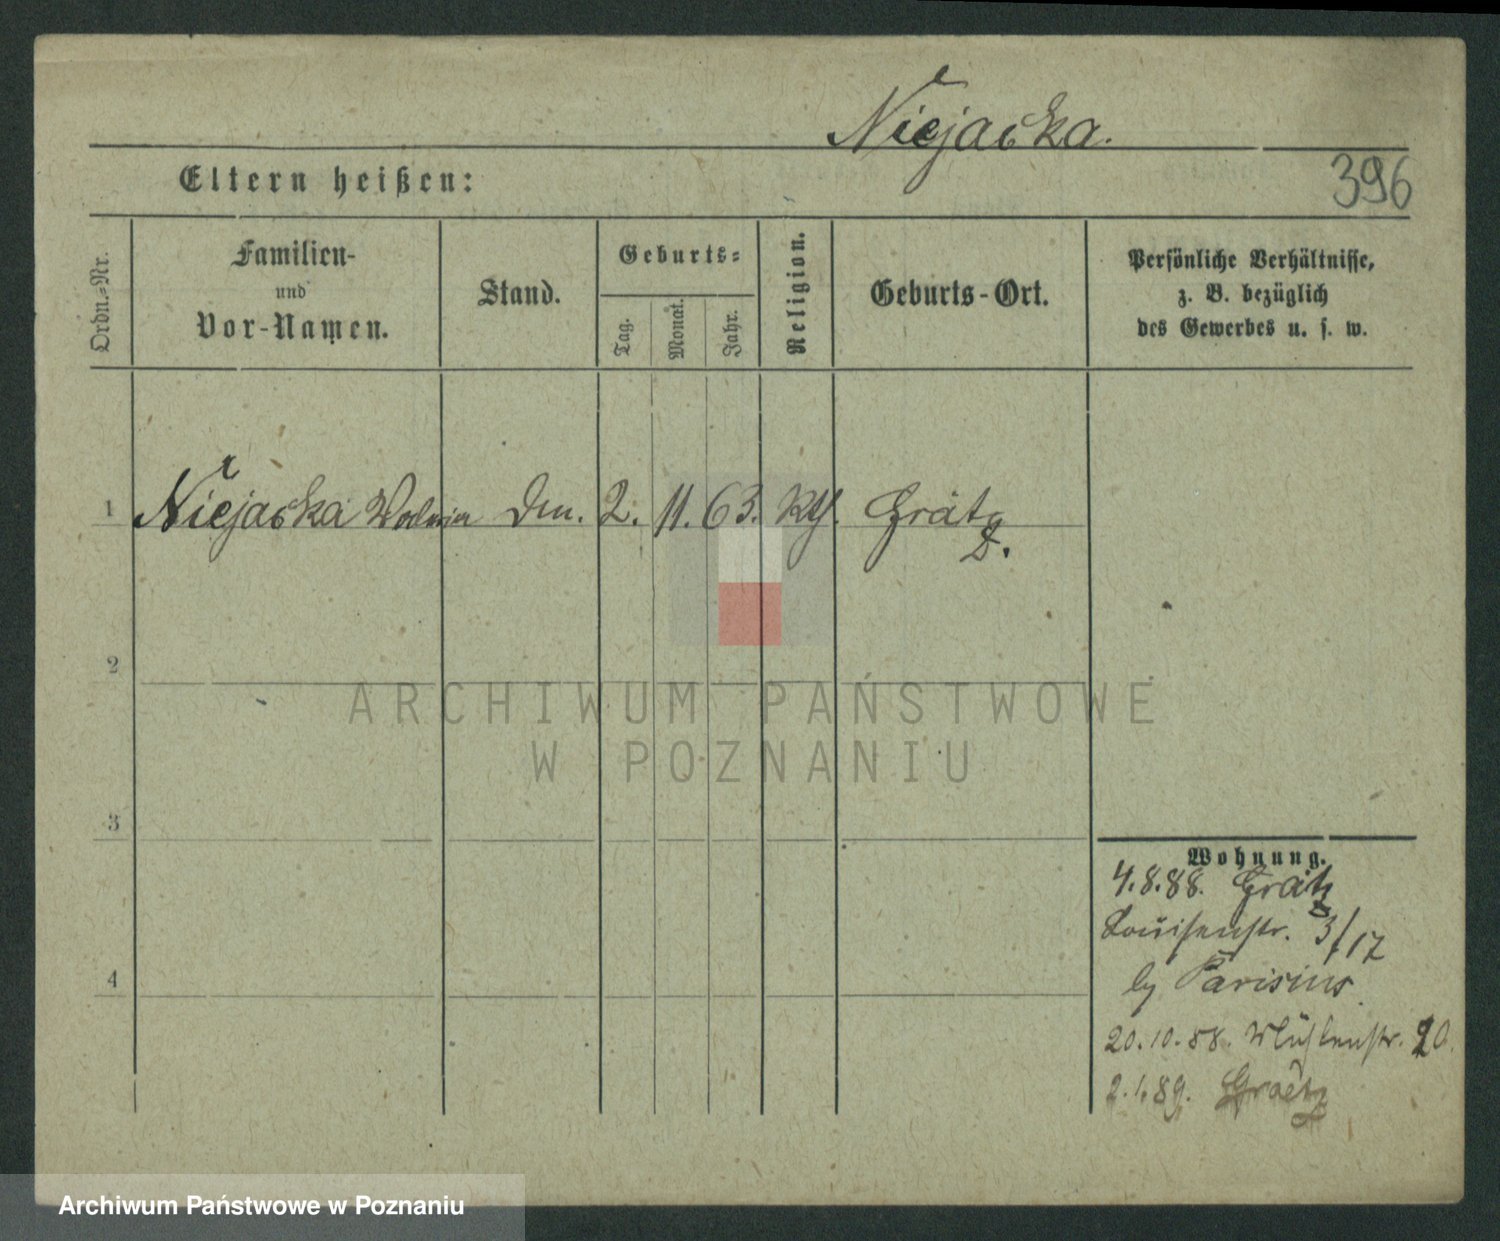 Niejacka.
396
Eltern heißen:
Ordn.-Nr.
Familien-
und
Vor-Namen.
Stand.
Geburts-
Tag.
Monat.
Jahr.
Religion.
Geburts-Ort.
Persönliche Verhältnisse,
z. B. bezüglich
des Gewerbes u. s. w.
1 Niejacka 2. 11. 63. Kth. Grätz
2
ARCHIWUM PAŃSTWOWE
W POZNANIU
3
4
Wohnung.
4.8.88. Grätz
Louisenstr. 3/17
by Parisius.
20.10.88. Mühlenstr. 20.
2.1.89. Graetz
Archiwum Państwowe w Poznaniu